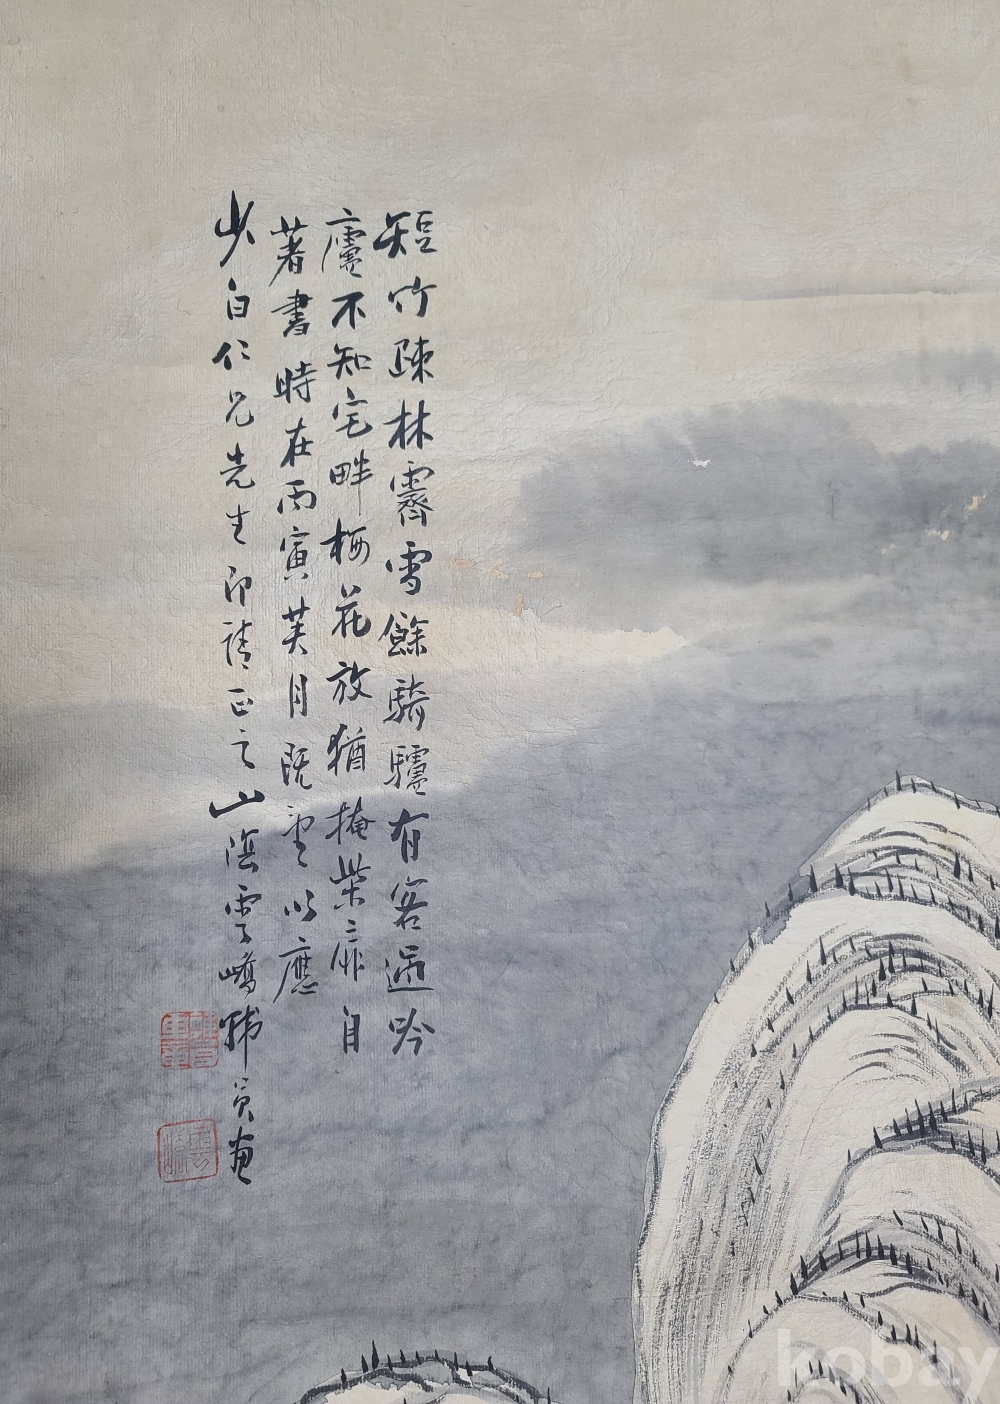 短竹疎林霽雪餘騎驢有客過吟
廬不知宅畔梅花放猶掩柴扉自
著書時在丙寅芙月既望以應
少白仁兄先生即請正之山陰雲嶠畫
kobay